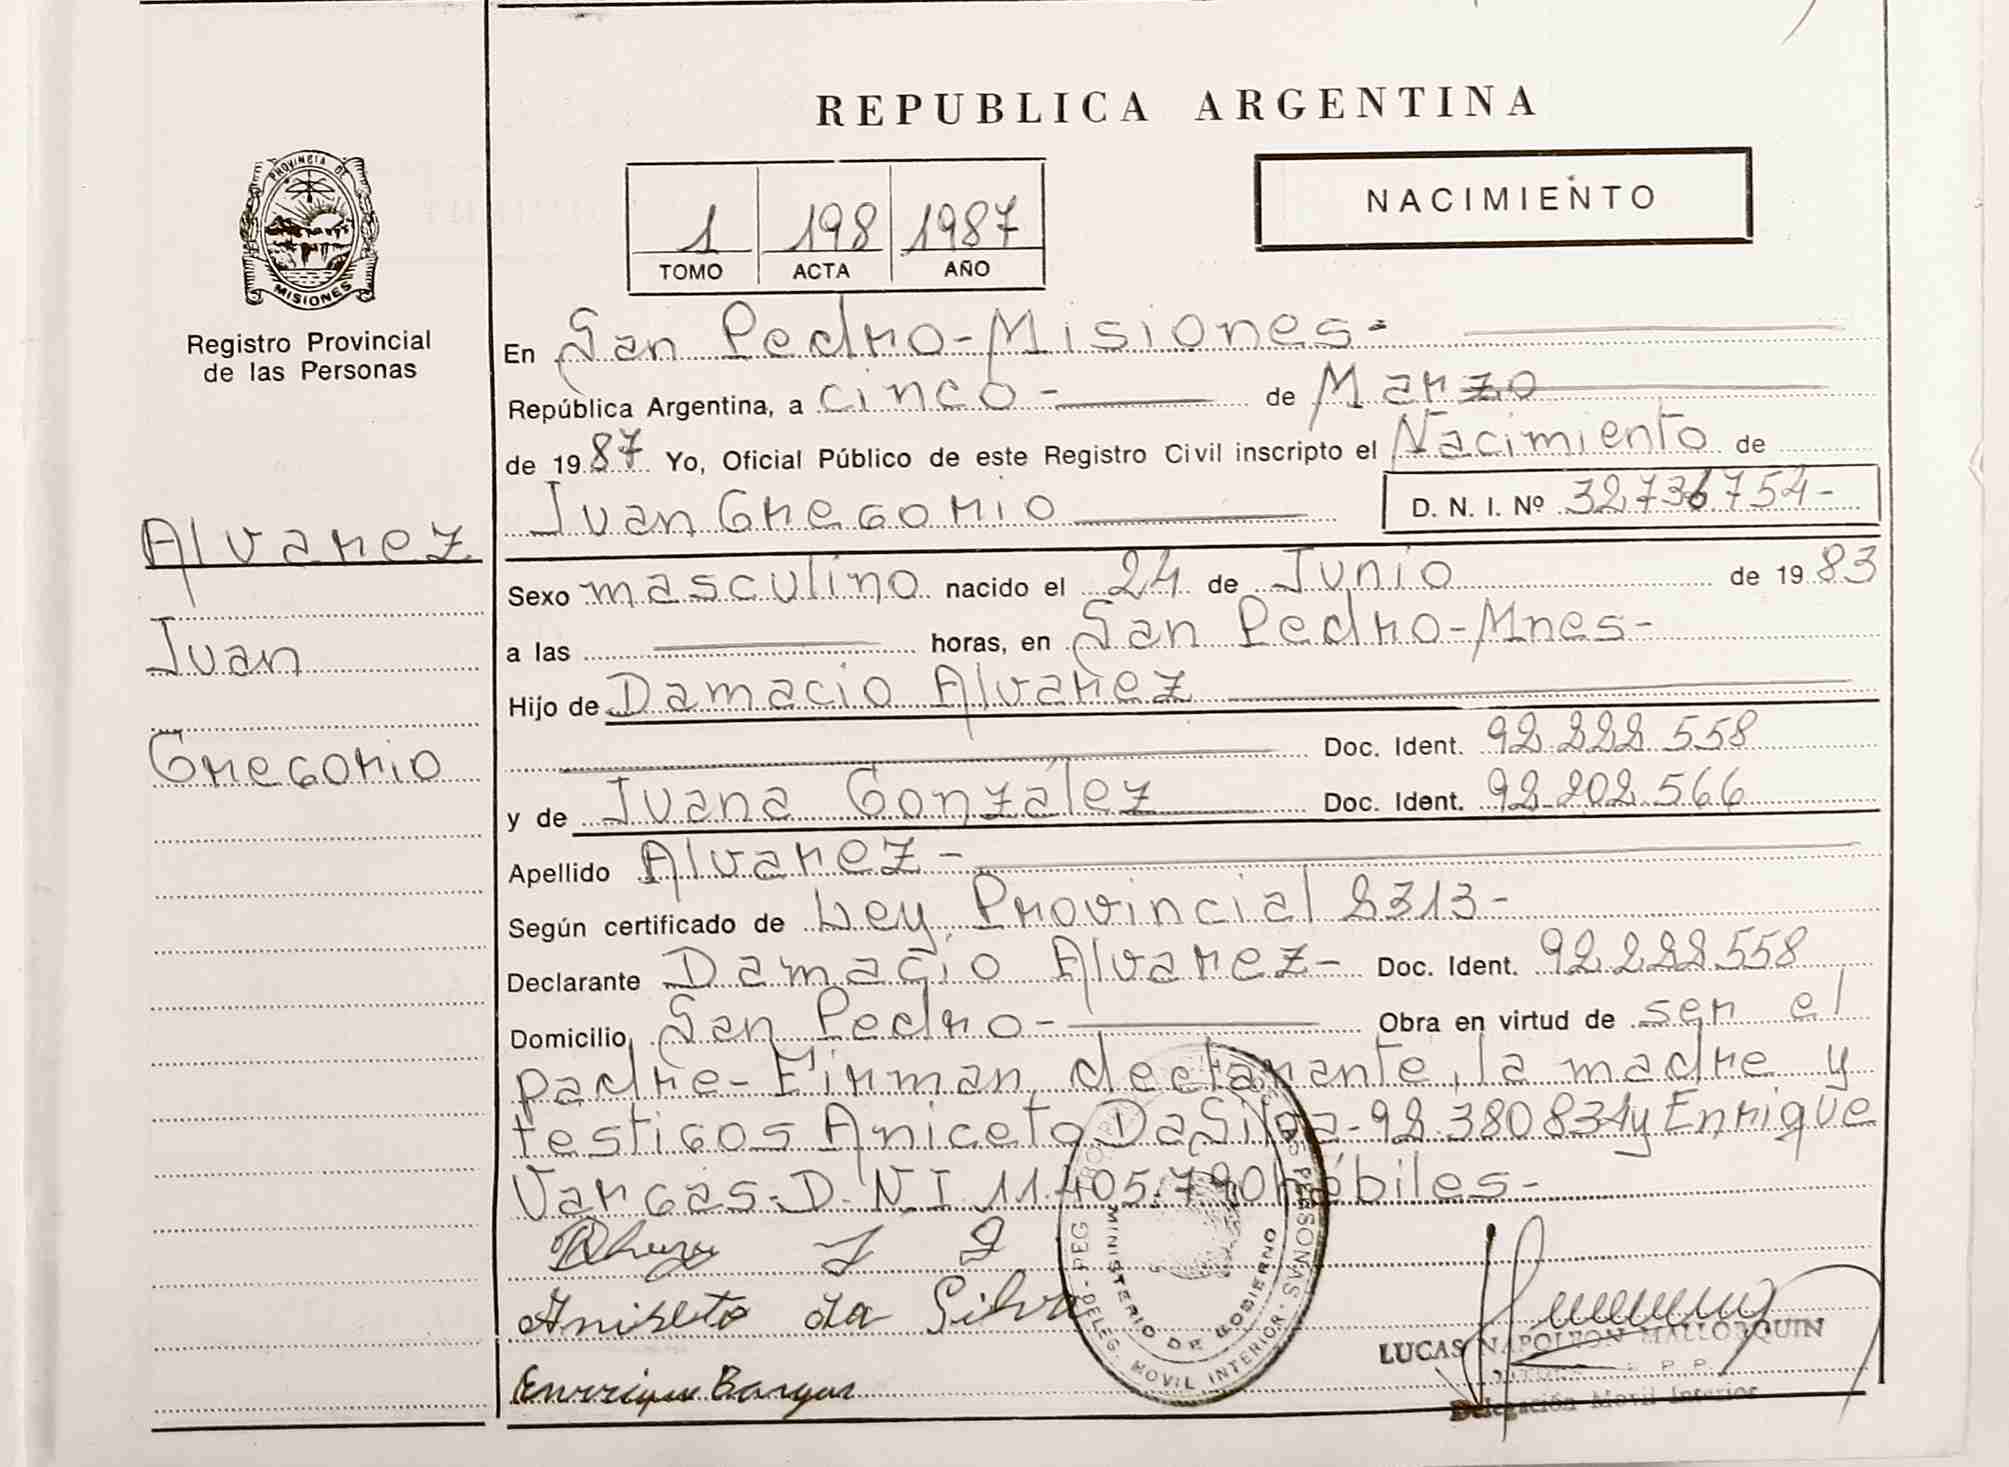 REPUBLICA ARGENTINA
PROVINCIA DE
MISIONES
Registro Provincial
de las Personas
1 198 1987
TOMO ACTA AÑO
NACIMIENTO
En San Pedro-Misiones-
República Argentina, a cinco- de Marzo
de 1987 Yo, Oficial Público de este Registro Civil inscripto el Nacimiento de
Juan Gregorio D. N. I. Nº 32736754-
Alvarez
Juan
Gregorio
Sexo masculino nacido el 24 de Junio de 1983
a las horas, en San Pedro-Mnes-
Hijo de Damacio Alvarez
Doc. Ident. 92.222.558
y de Juana González Doc. Ident. 92.202.566
Apellido Alvarez-
Según certificado de Ley Provincial 2313-
Declarante Damacio Alvarez- Doc. Ident. 92.222.558
Domicilio San Pedro- Obra en virtud de ser el
padre- Firman declarante, la madre y
testigos Aniceto Da Silva-92.380834y Enrique
Vargas-D.N.I 11.405.790hábiles-
J G
Aniseto da Silva
Enrrique Bargas
MINISTERIO DE GOBIERNO
DELEG. MOVIL INTERIOR
LUCAS NAPOLEON MALLORQUIN
Delegación Movil Interior